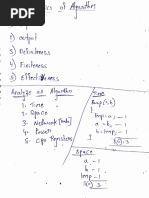 of Algorithm
2) output
3) Definiteness
4) Finiteness
5) Effectiveness
Analysis an Algorithm
1. Time
2. Space
3. Network
4. Power
5. CPU Registers
Time
temp = a; -1
a = b; -1
b = temp; -1
Space
a -1
b -1
temp -1